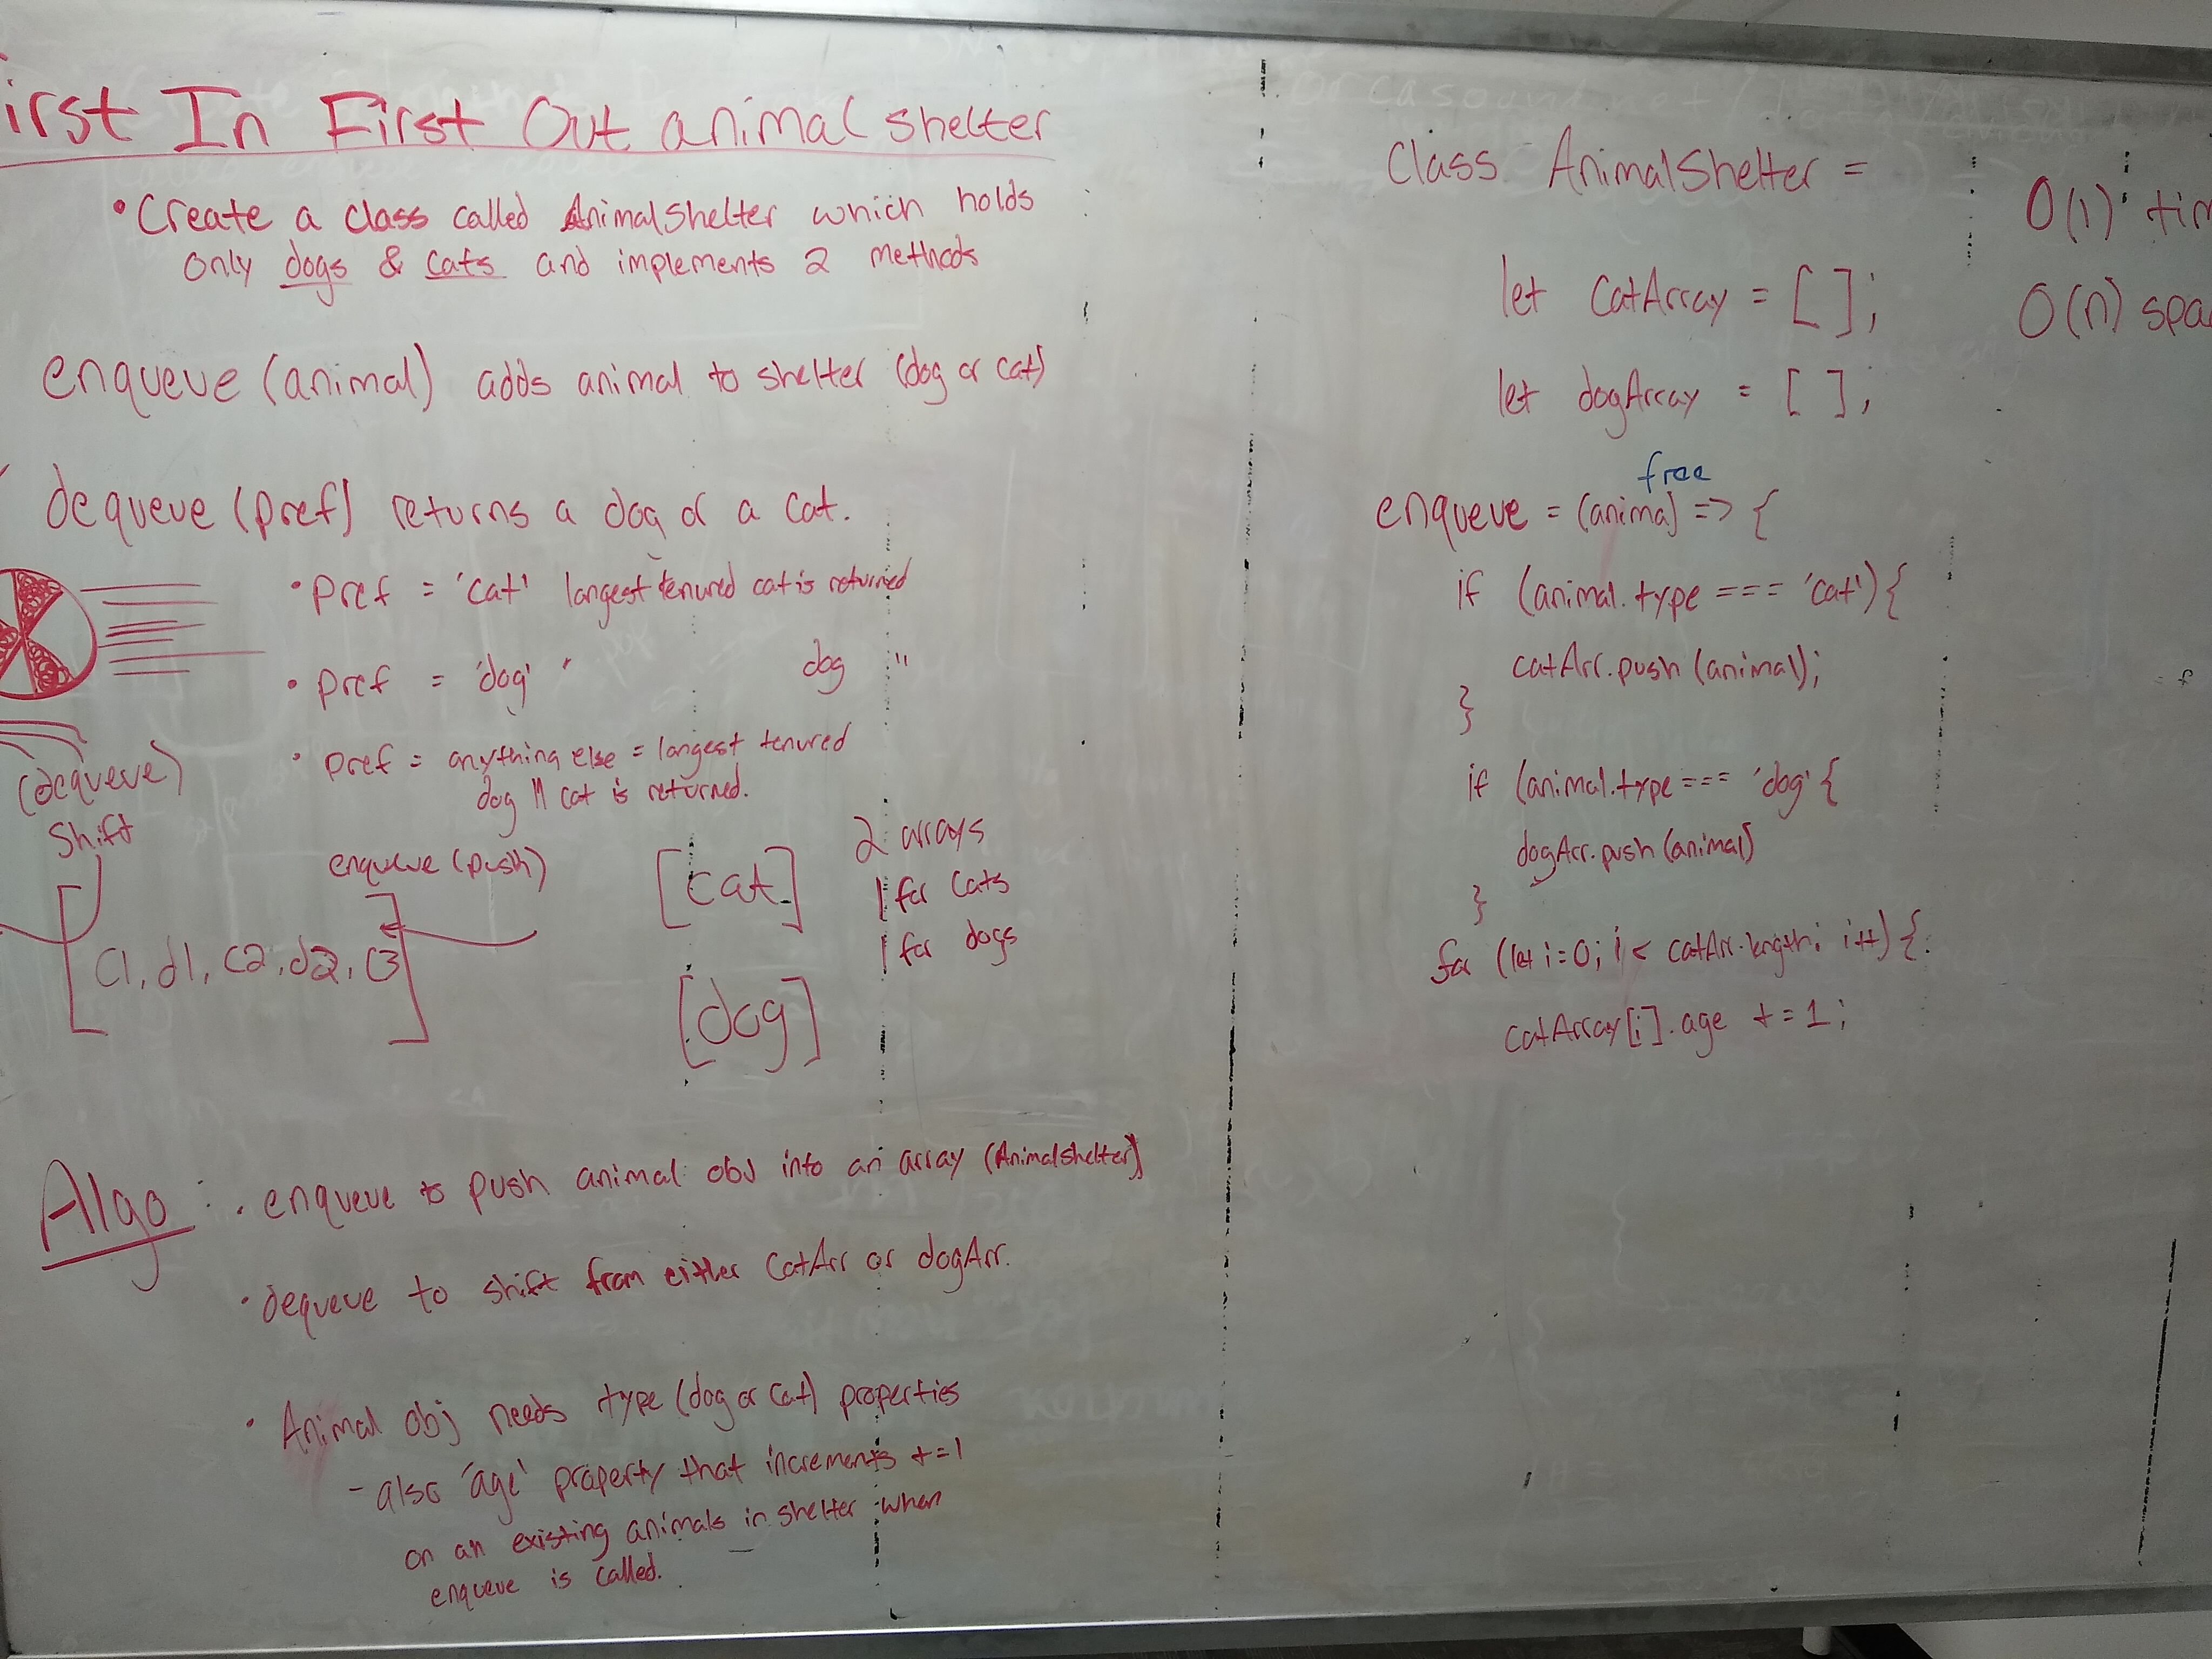 irst In First Out animal shelter
• Create a class called AnimalShelter which holds
only dogs & cats and implements 2 methods
enqueue (animal) adds animal to shelter (dog or cat)
dequeue (pref) returns a dog or a cat.
• pref = 'cat' longest tenured cat is returned
• pref = 'dog' " dog "
• pref = anything else = longest tenured
dog || cat is returned.
(dequeue)
shift
enqueue (push)
[C1, d1, C2, d2, C3]
[cat]
[dog]
2 arrays
1 for cats
1 for dogs
Algo : • enqueue to push animal obj into an array (Animalshelter)
• dequeue to shift from either CatArr or dogArr.
• Animal obj needs type (dog or cat) properties
- also 'age' property that increments +=1
on an existing animals in shelter when
enqueue is called.
Class AnimalShelter =
let CatArray = [ ];
let dogArray = [ ];
free
enqueue = (animal) => {
if (animal.type === 'cat') {
catArr.push (animal);
}
if (animal.type === 'dog' {
dogArr.push (animal)
}
for (let i=0; i < catArr.length; i++) {
catArray[i].age += 1;
O(1) tim
O(n) spa